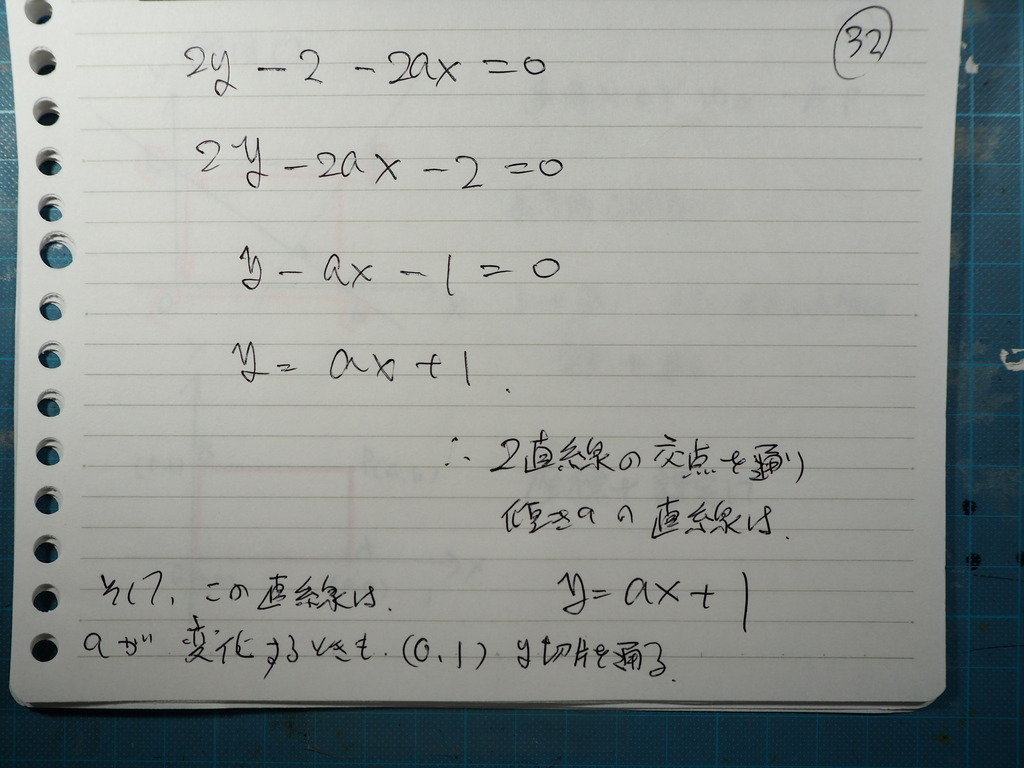 32
2y - 2 - 2ax = 0
2y - 2ax - 2 = 0
y - ax - 1 = 0
y = ax + 1.
∴ 2直線の交点を通り
傾きaの直線は.
y = ax + 1
そして、この直線は.
aが変化するときも.(0.1) y切片を通る.